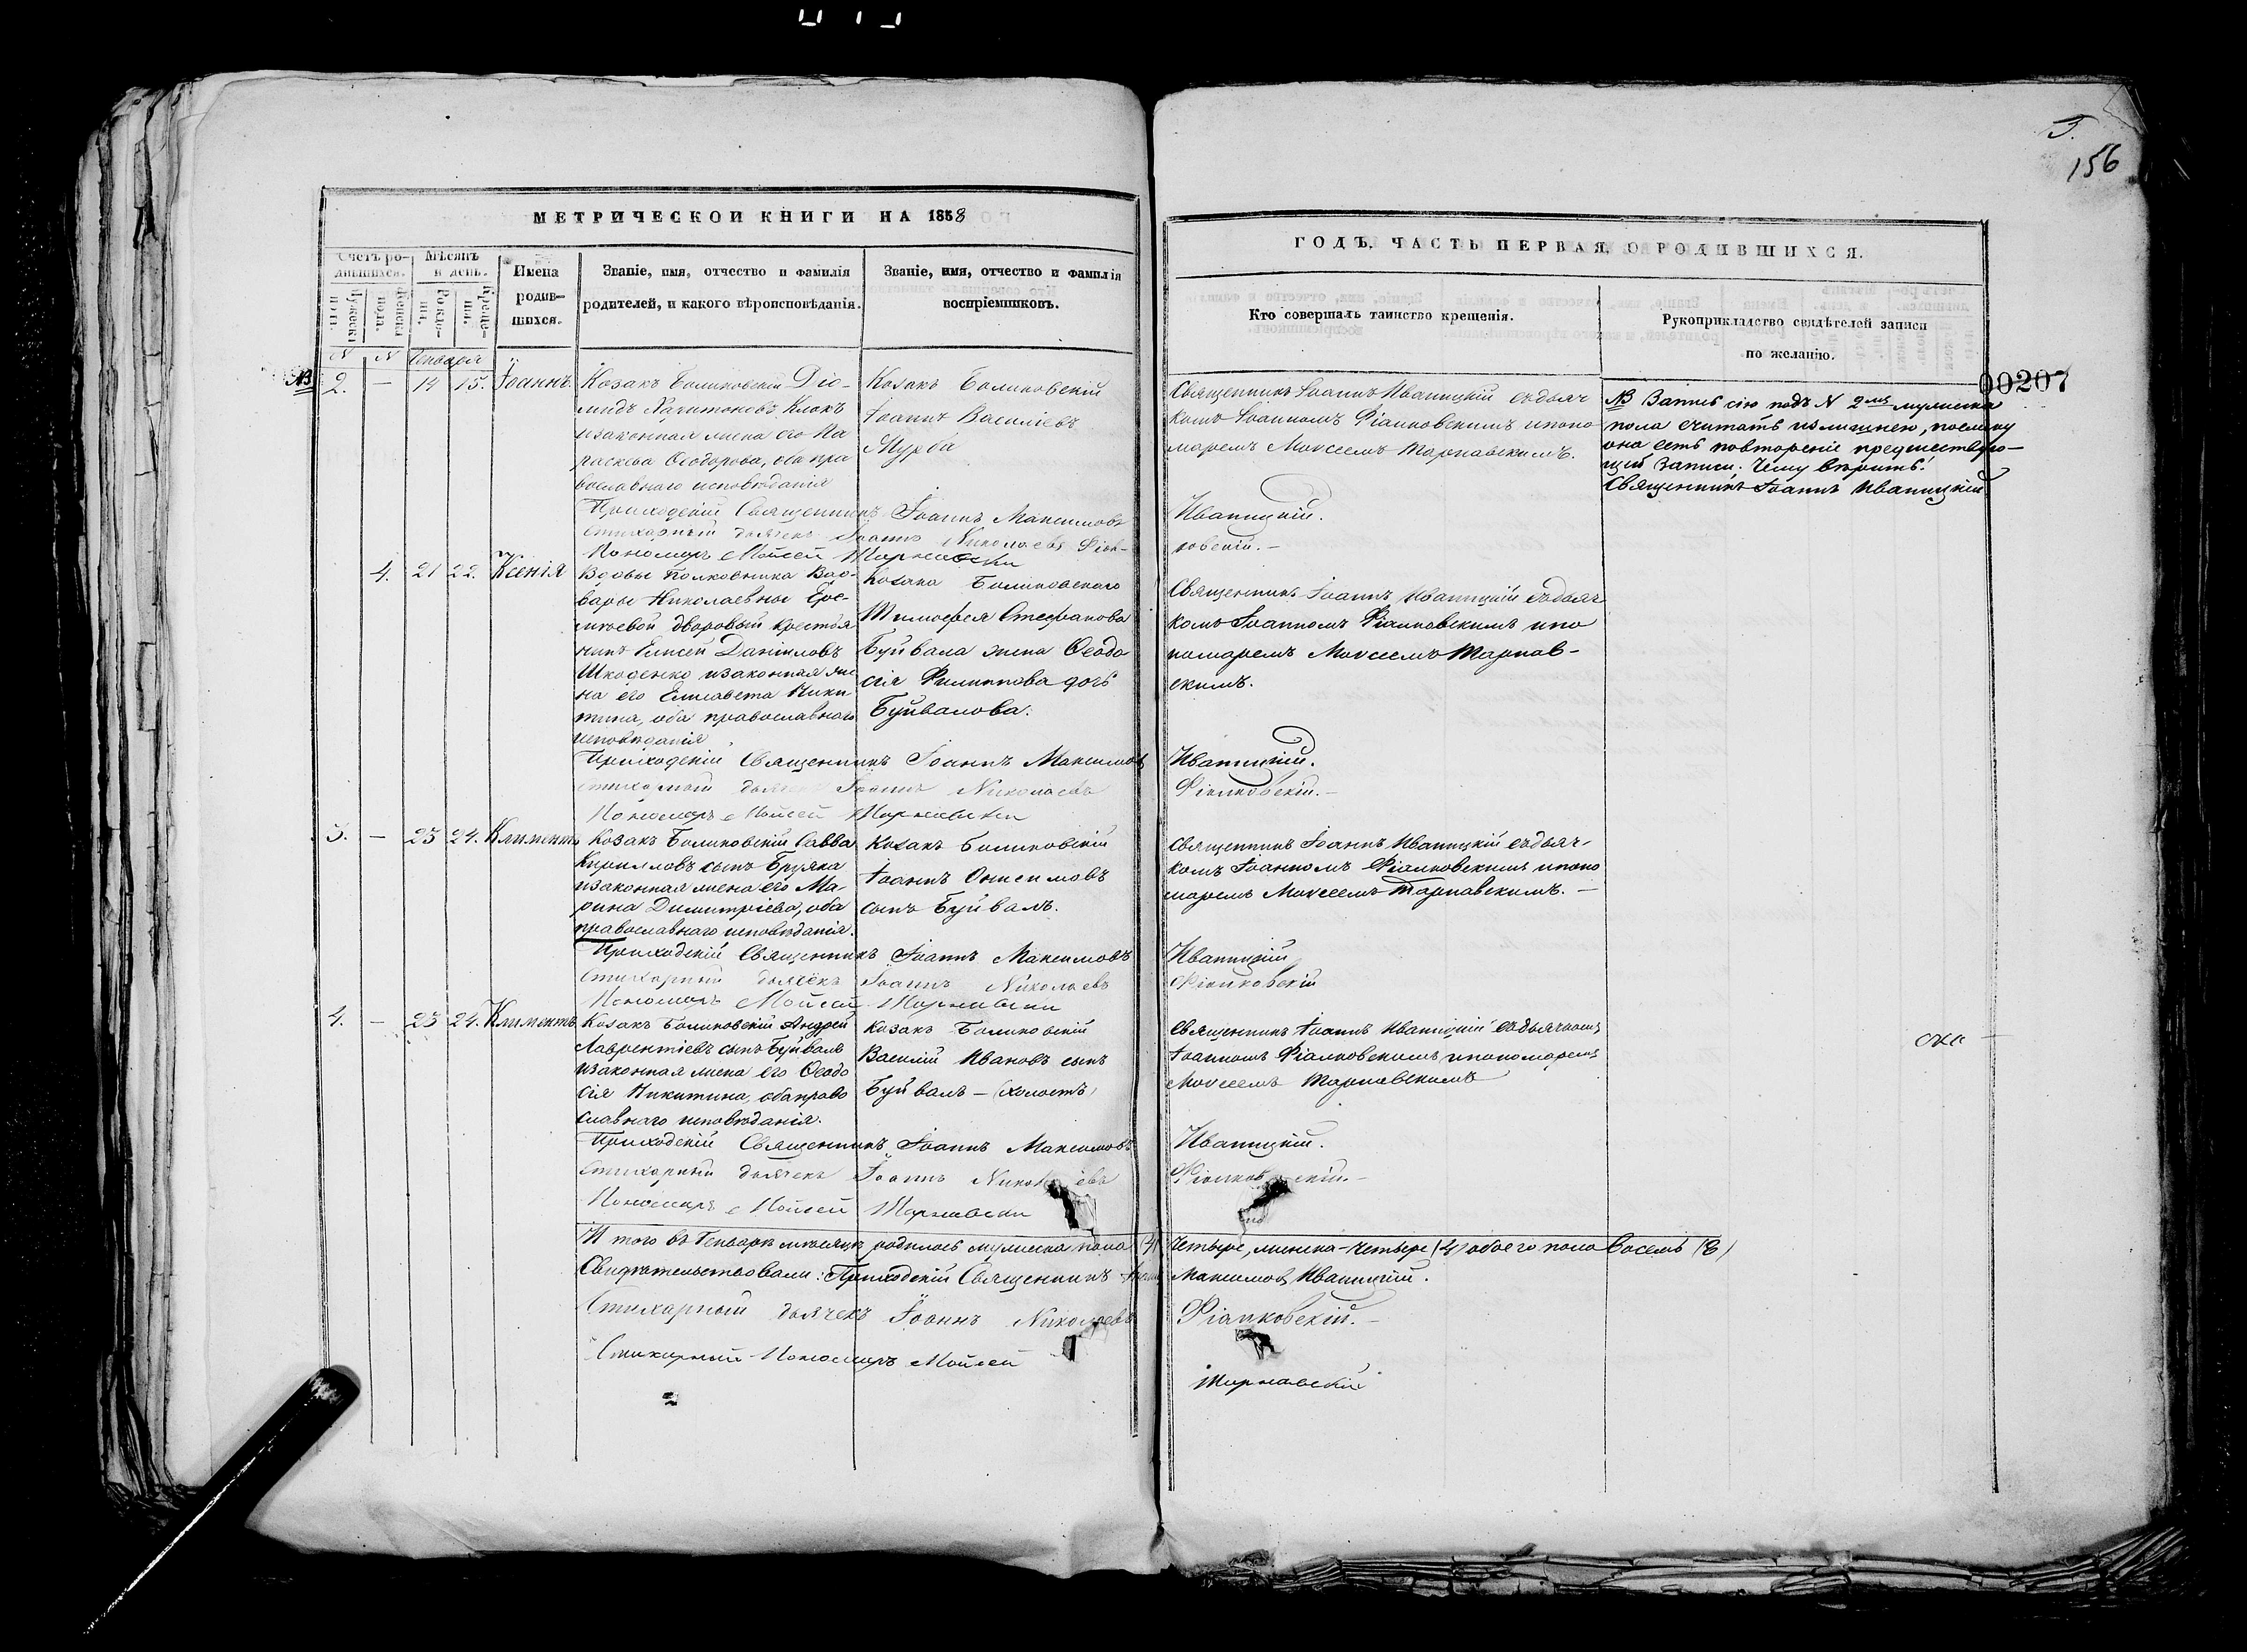 3.
156
МЕТРИЧЕСКОЙ КНИГИ НА 1858
ГОДЪ, ЧАСТЬ ПЕРВАЯ, О РОДИВШИХСЯ.
Счетъ родившихся.
Мужеска пола.
Женска пола.
Мѣсяцъ и день.
Рождения.
Крещения.
Имена родившихся.
Званіе, имя, отчество и фамилія
родителей, и какого вѣроисповѣданія.
Званіе, имя, отчество и фамилія
воспріемниковъ.
Кто совершалъ таинство крещенія.
Рукоприкладство свидѣтелей записи
по желанію.
N N Генваря
00207
NB 2. — 14 15. Іоаннъ
Козакъ Боликовскій Діо-
мидъ Харитоновъ Клокъ
и законная жена его Па
раскева Ѳеодорова, оба пра
вославнаго исповѣданія
Козакъ Боликовскій
Іоаннъ Василіевъ
Мурба
Священникъ Іоаннъ Иваницкій съ дьяч
комъ Іоанномъ Фіалковскимъ и поно
маремъ Моѵсеемъ Тарнавскимъ.
NB Запись сію подъ N 2мъ мужеска
пола считать излишнею, поелику
она есть повтореніе предшествую-
щей записи. Чему вѣрить!
Священникъ Іоаннъ Иваницкій
Приходскій Священникъ Іоаннъ Максимовъ Иваницкій.
Стихарный дьячекъ Іоаннъ Николаевъ Фіал-
ковскій. —
Пономарь Мойсей Тарнавскій
4. 21 22. Ксенія
Вдовы Полковника Вар-
вары Николаевны Ере-
мѣевой дворовый крестья
нинъ Елисей Даніиловъ
и законная же
на его Елисавета Ники
тина, оба православнаго
исповѣданія
Козака Боликовскаго
Тимофея Стефанова
Буйвала жена Ѳеодо
сія Филиппова дочь
Буйвалова.
Священникъ Іоаннъ Иваницкій съ дьяч
комъ Іоанномъ Фіалковскимъ и по
номаремъ Моѵсеемъ Тарнав-
скимъ.
Приходскій Священникъ Іоаннъ Максимовъ Иваницкій.
Стихарный дьячекъ Іоаннъ Николаевъ Фіалковскій. —
Пономарь Мойсей Тарнавскій
3. — 23 24. Климентъ
Козакъ Боликовскій Савва
Кирилловъ сынъ Бруяка
и законная жена его Ма-
рина Димитріева, оба
православнаго исповѣданія.
Козакъ Боликовскій
Іоаннъ Онисимовъ
сынъ Буйвалъ.
Священникъ Іоаннъ Иваницкій съ дьяч-
комъ Іоанномъ Фіалковскимъ и поно
маремъ Моѵсеемъ Тарнавскимъ. —
Приходскій Священникъ Іоаннъ Максимовъ Иваницкій
Стихарный дьячекъ Іоаннъ Николаевъ Фіалковскій
Пономарь Мойсей Тарнавскій
4. — 23 24. Климентъ
Козакъ Боликовскій Андрей
Лаврентіевъ сынъ Буйвалъ
и законная жена его Ѳеодо
сія Никитина, оба право
славнаго исповѣданія.
Козакъ Боликовскій
Василій Ивановъ сынъ
Буйвалъ — (холостъ)
Священникъ Іоаннъ Иваницкій съ дьячкомъ
Іоанномъ Фіалковскимъ и пономаремъ
Моѵсеемъ Тарнавскимъ
Приходскій Священникъ Іоаннъ Максимовъ Иваницкій.
Стихарный дьячекъ Іоаннъ Николаевъ Фіалковскій. —
Пономарь Мойсей Тарнавскій
И того въ Генварѣ мѣсяцѣ родилось мужеска пола (4) четыре, женска — четыре (4) обоего пола восемь (8)
Свидѣтельствовали: Приходскій Священникъ Іоаннъ Максимовъ Иваницкій.
Стихарный дьячекъ Іоаннъ Николаевъ Фіалковскій. —
Стихарный Пономарь Мойсей Тарнавскій